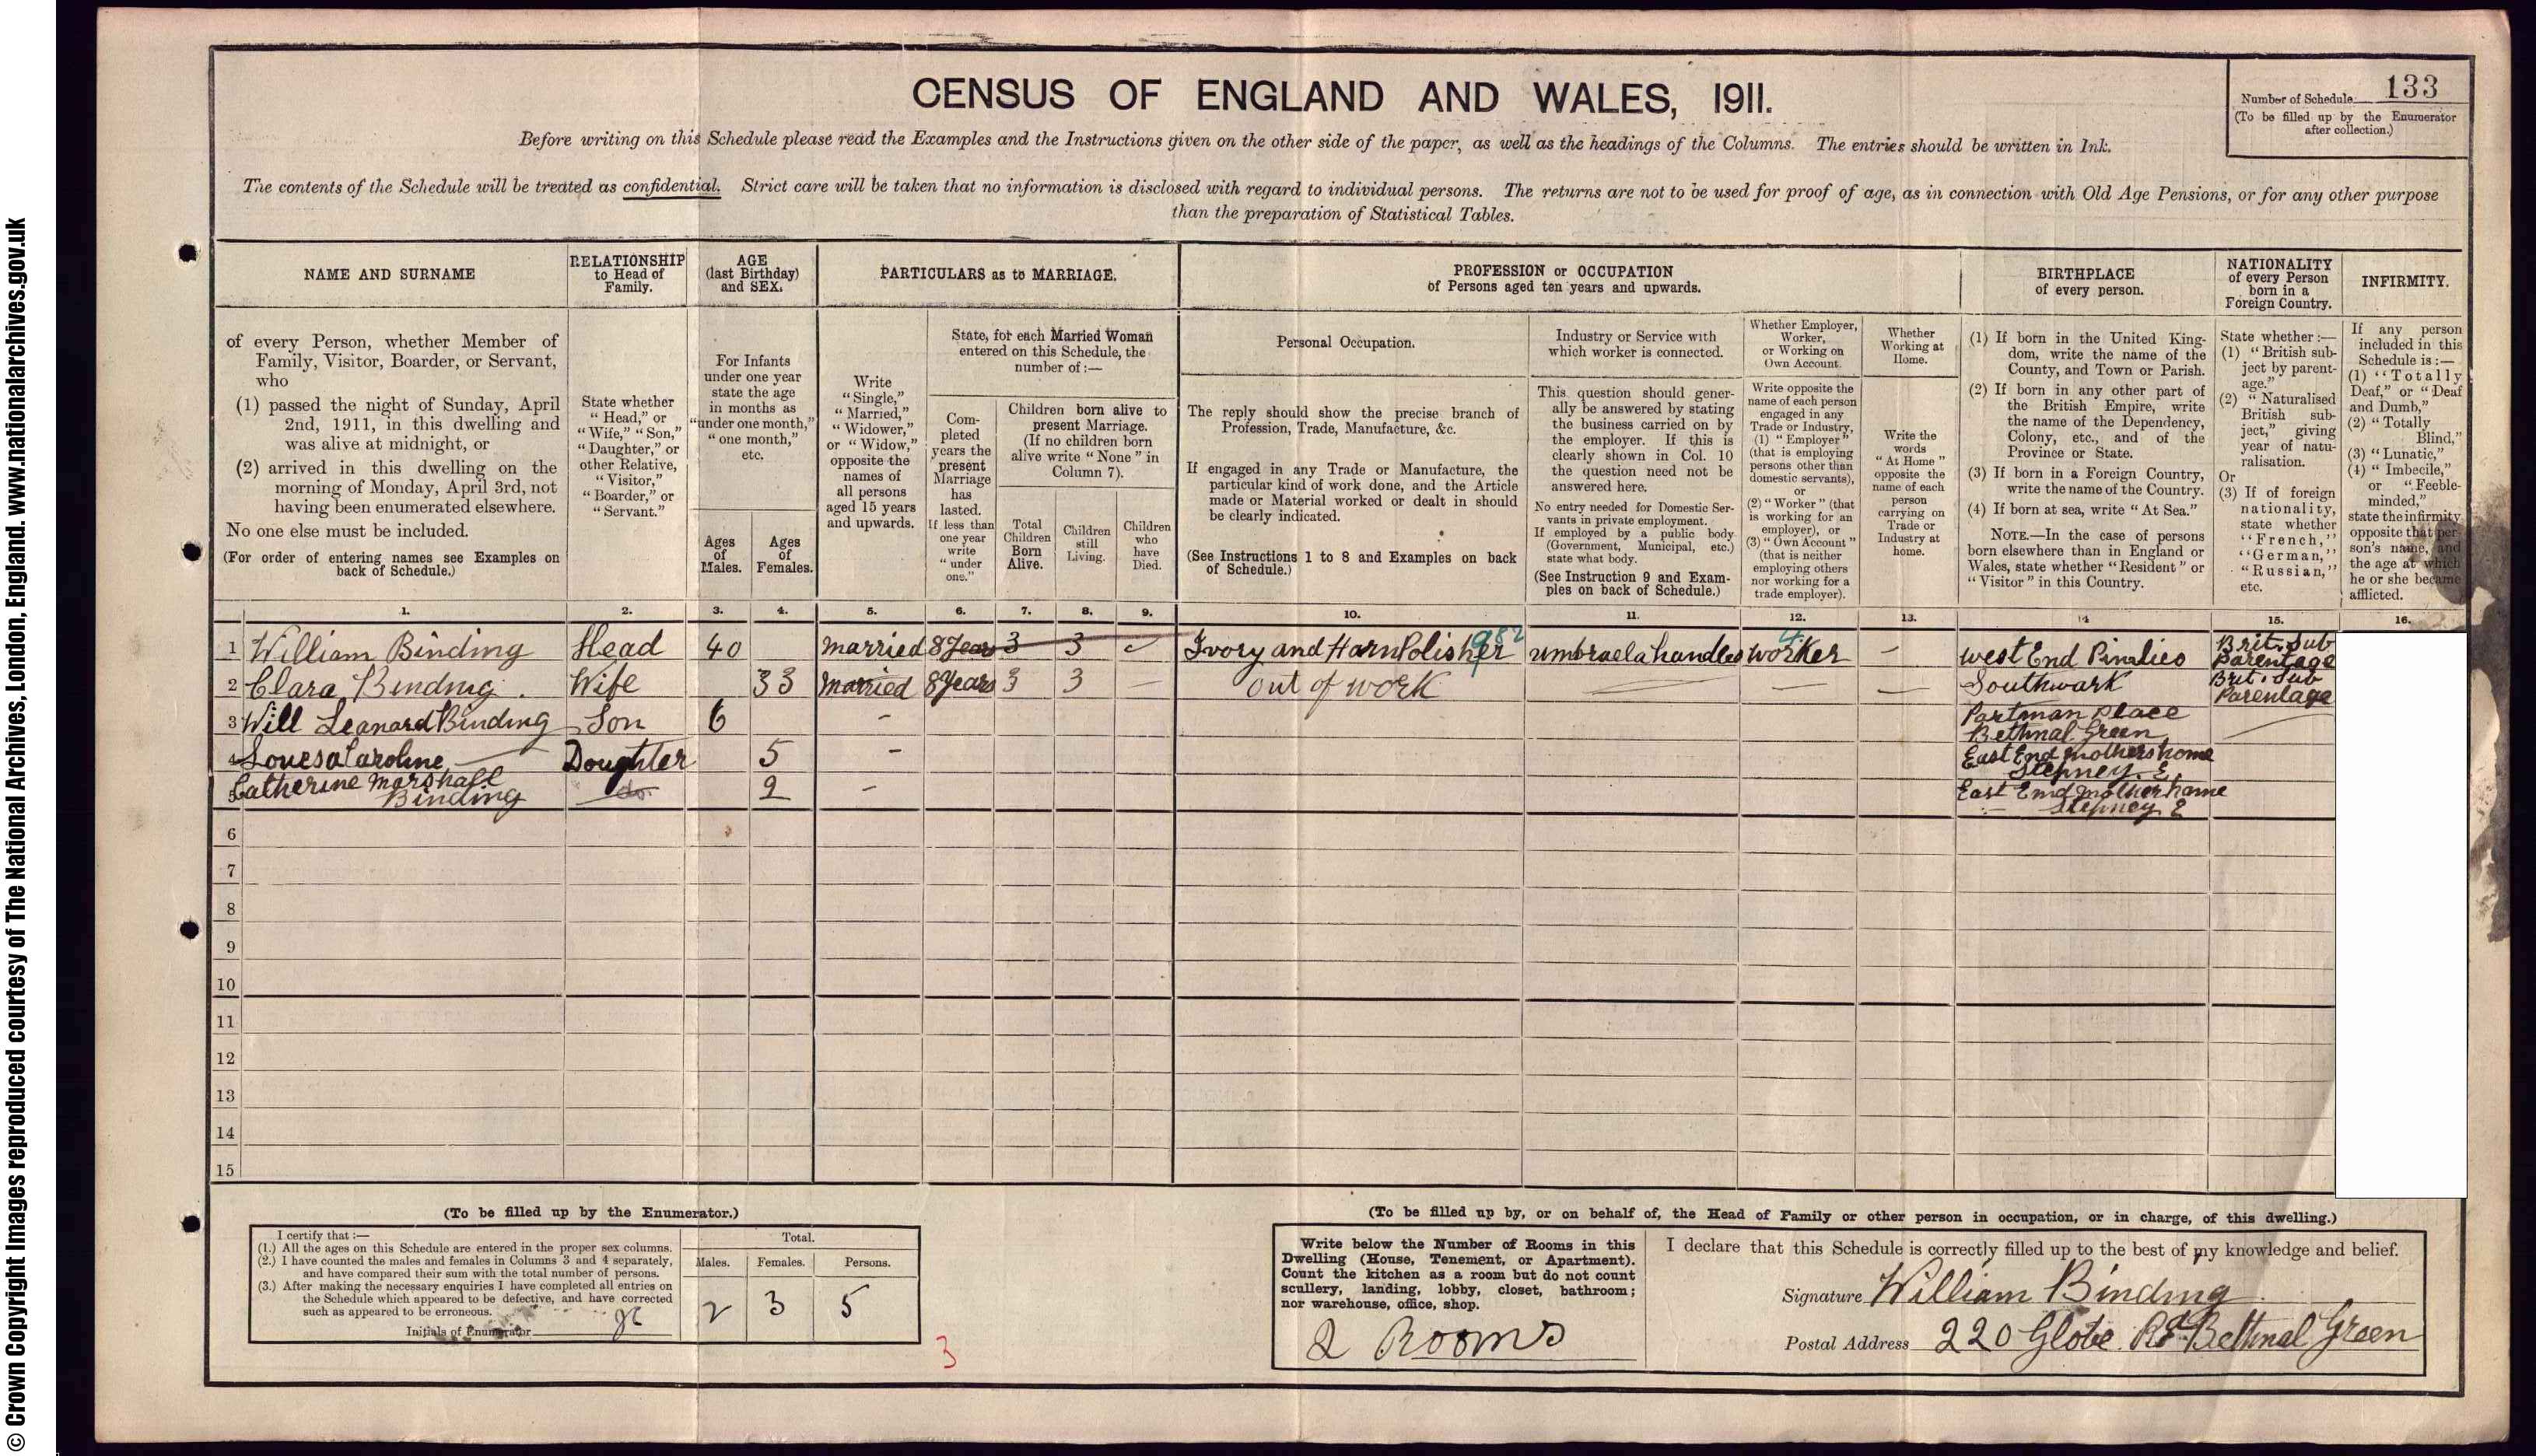 © Crown Copyright Images reproduced courtesy of The National Archives, London, England. www.nationalarchives.gov.uk
CENSUS OF ENGLAND AND WALES, 1911.
Number of Schedule 133
(To be filled up by the Enumerator
after collection.)
Before writing on this Schedule please read the Examples and the Instructions given on the other side of the paper, as well as the headings of the Columns. The entries should be written in Ink.
The contents of the Schedule will be treated as confidential. Strict care will be taken that no information is disclosed with regard to individual persons. The returns are not to be used for proof of age, as in connection with Old Age Pensions, or for any other purpose
than the preparation of Statistical Tables.
NAME AND SURNAME
of every Person, whether Member of
Family, Visitor, Boarder, or Servant,
who
(1) passed the night of Sunday, April
2nd, 1911, in this dwelling and
was alive at midnight, or
(2) arrived in this dwelling on the
morning of Monday, April 3rd, not
having been enumerated elsewhere.
No one else must be included.
(For order of entering names see Examples on
back of Schedule.)
1.
RELATIONSHIP
to Head of
Family.
State whether
"Head," or
"Wife," "Son,"
"Daughter," or
other Relative,
"Visitor,"
"Boarder," or
"Servant."
2.
AGE
(last Birthday)
and SEX.
For Infants
under one year
state the age
in months as
"under one month,"
"one month,"
etc.
Ages
of
Males.
3.
Ages
of
Females.
4.
PARTICULARS as to MARRIAGE.
Write
"Single,"
"Married,"
"Widower,"
or "Widow,"
opposite the
names of
all persons
aged 15 years
and upwards.
5.
State, for each Married Woman
entered on this Schedule, the
number of:—
Com-
pleted
years the
present
Marriage
has
lasted.
If less than
one year
write
"under
one."
6.
Children born alive to
present Marriage.
(If no children born
alive write "None" in
Column 7).
Total
Children
Born
Alive.
7.
Children
still
Living.
8.
Children
who
have
Died.
9.
PROFESSION or OCCUPATION
of Persons aged ten years and upwards.
Personal Occupation.
The reply should show the precise branch of
Profession, Trade, Manufacture, &c.
If engaged in any Trade or Manufacture, the
particular kind of work done, and the Article
made or Material worked or dealt in should
be clearly indicated.
(See Instructions 1 to 8 and Examples on back
of Schedule.)
10.
Industry or Service with
which worker is connected.
This question should gener-
ally be answered by stating
the business carried on by
the employer. If this is
clearly shown in Col. 10
the question need not be
answered here.
No entry needed for Domestic Ser-
vants in private employment.
If employed by a public body
(Government, Municipal, etc.)
state what body.
(See Instruction 9 and Exam-
ples on back of Schedule.)
11.
Whether Employer,
Worker,
or Working on
Own Account.
Write opposite the
name of each person
engaged in any
Trade or Industry,
(1) "Employer"
(that is employing
persons other than
domestic servants),
or
(2) "Worker" (that
is working for an
employer), or
(3) "Own Account"
(that is neither
employing others
nor working for a
trade employer).
12.
Whether
Working at
Home.
Write the
words
"At Home"
opposite the
name of each
person
carrying on
Trade or
Industry at
home.
13.
BIRTHPLACE
of every person.
(1) If born in the United King-
dom, write the name of the
County, and Town or Parish.
(2) If born in any other part of
the British Empire, write
the name of the Dependency,
Colony, etc., and of the
Province or State.
(3) If born in a Foreign Country,
write the name of the Country.
(4) If born at sea, write "At Sea."
NOTE.—In the case of persons
born elsewhere than in England or
Wales, state whether "Resident" or
"Visitor" in this Country.
14
NATIONALITY
of every Person
born in a
Foreign Country.
State whether:—
(1) "British sub-
ject by parent-
age."
(2) "Naturalised
British sub-
ject," giving
year of natu-
ralisation.
Or
(3) If of foreign
nationality,
state whether
"French,"
"German,"
"Russian,"
etc.
15.
INFIRMITY.
If any person
included in this
Schedule is:—
(1) "Totally
Deaf," or "Deaf
and Dumb,"
(2) "Totally
Blind,"
(3) "Lunatic,"
(4) "Imbecile,"
or "Feeble-
minded,"
state the infirmity
opposite that per-
son's name, and
the age at which
he or she became
afflicted.
16.
1 William Binding Head 40 Married 8 Years 3 3 Ivory and Harn Polisher 982 umbraela handles worker 4 — West End Pimlico Brit. Sub Parentage
2 Clara Binding. Wife 33 Married 8 Years 3 3 — out of work — — — Southwark Brit. Sub Parentage
3 Will Leanard Binding Son 6 - Partman place Bethnal Green
4 Louesa Caroline — Doughter 5 - East End mothers home Stepney. E.
5 Catherine Marshall Binding do. 2 - East End mother home Stepney E
6
7
8
9
10
11
12
13
14
15
(To be filled up by the Enumerator.)
I certify that:—
(1.) All the ages on this Schedule are entered in the proper sex columns.
(2.) I have counted the males and females in Columns 3 and 4 separately,
and have compared their sum with the total number of persons.
(3.) After making the necessary enquiries I have completed all entries on
the Schedule which appeared to be defective, and have corrected
such as appeared to be erroneous.
Initials of Enumerator
Total.
Males. Females. Persons.
2 3 5
3
(To be filled up by, or on behalf of, the Head of Family or other person in occupation, or in charge, of this dwelling.)
Write below the Number of Rooms in this
Dwelling (House, Tenement, or Apartment).
Count the kitchen as a room but do not count
scullery, landing, lobby, closet, bathroom;
nor warehouse, office, shop.
2 Rooms
I declare that this Schedule is correctly filled up to the best of my knowledge and belief.
Signature William Binding
Postal Address 220 Globe Rd Bethnal Green